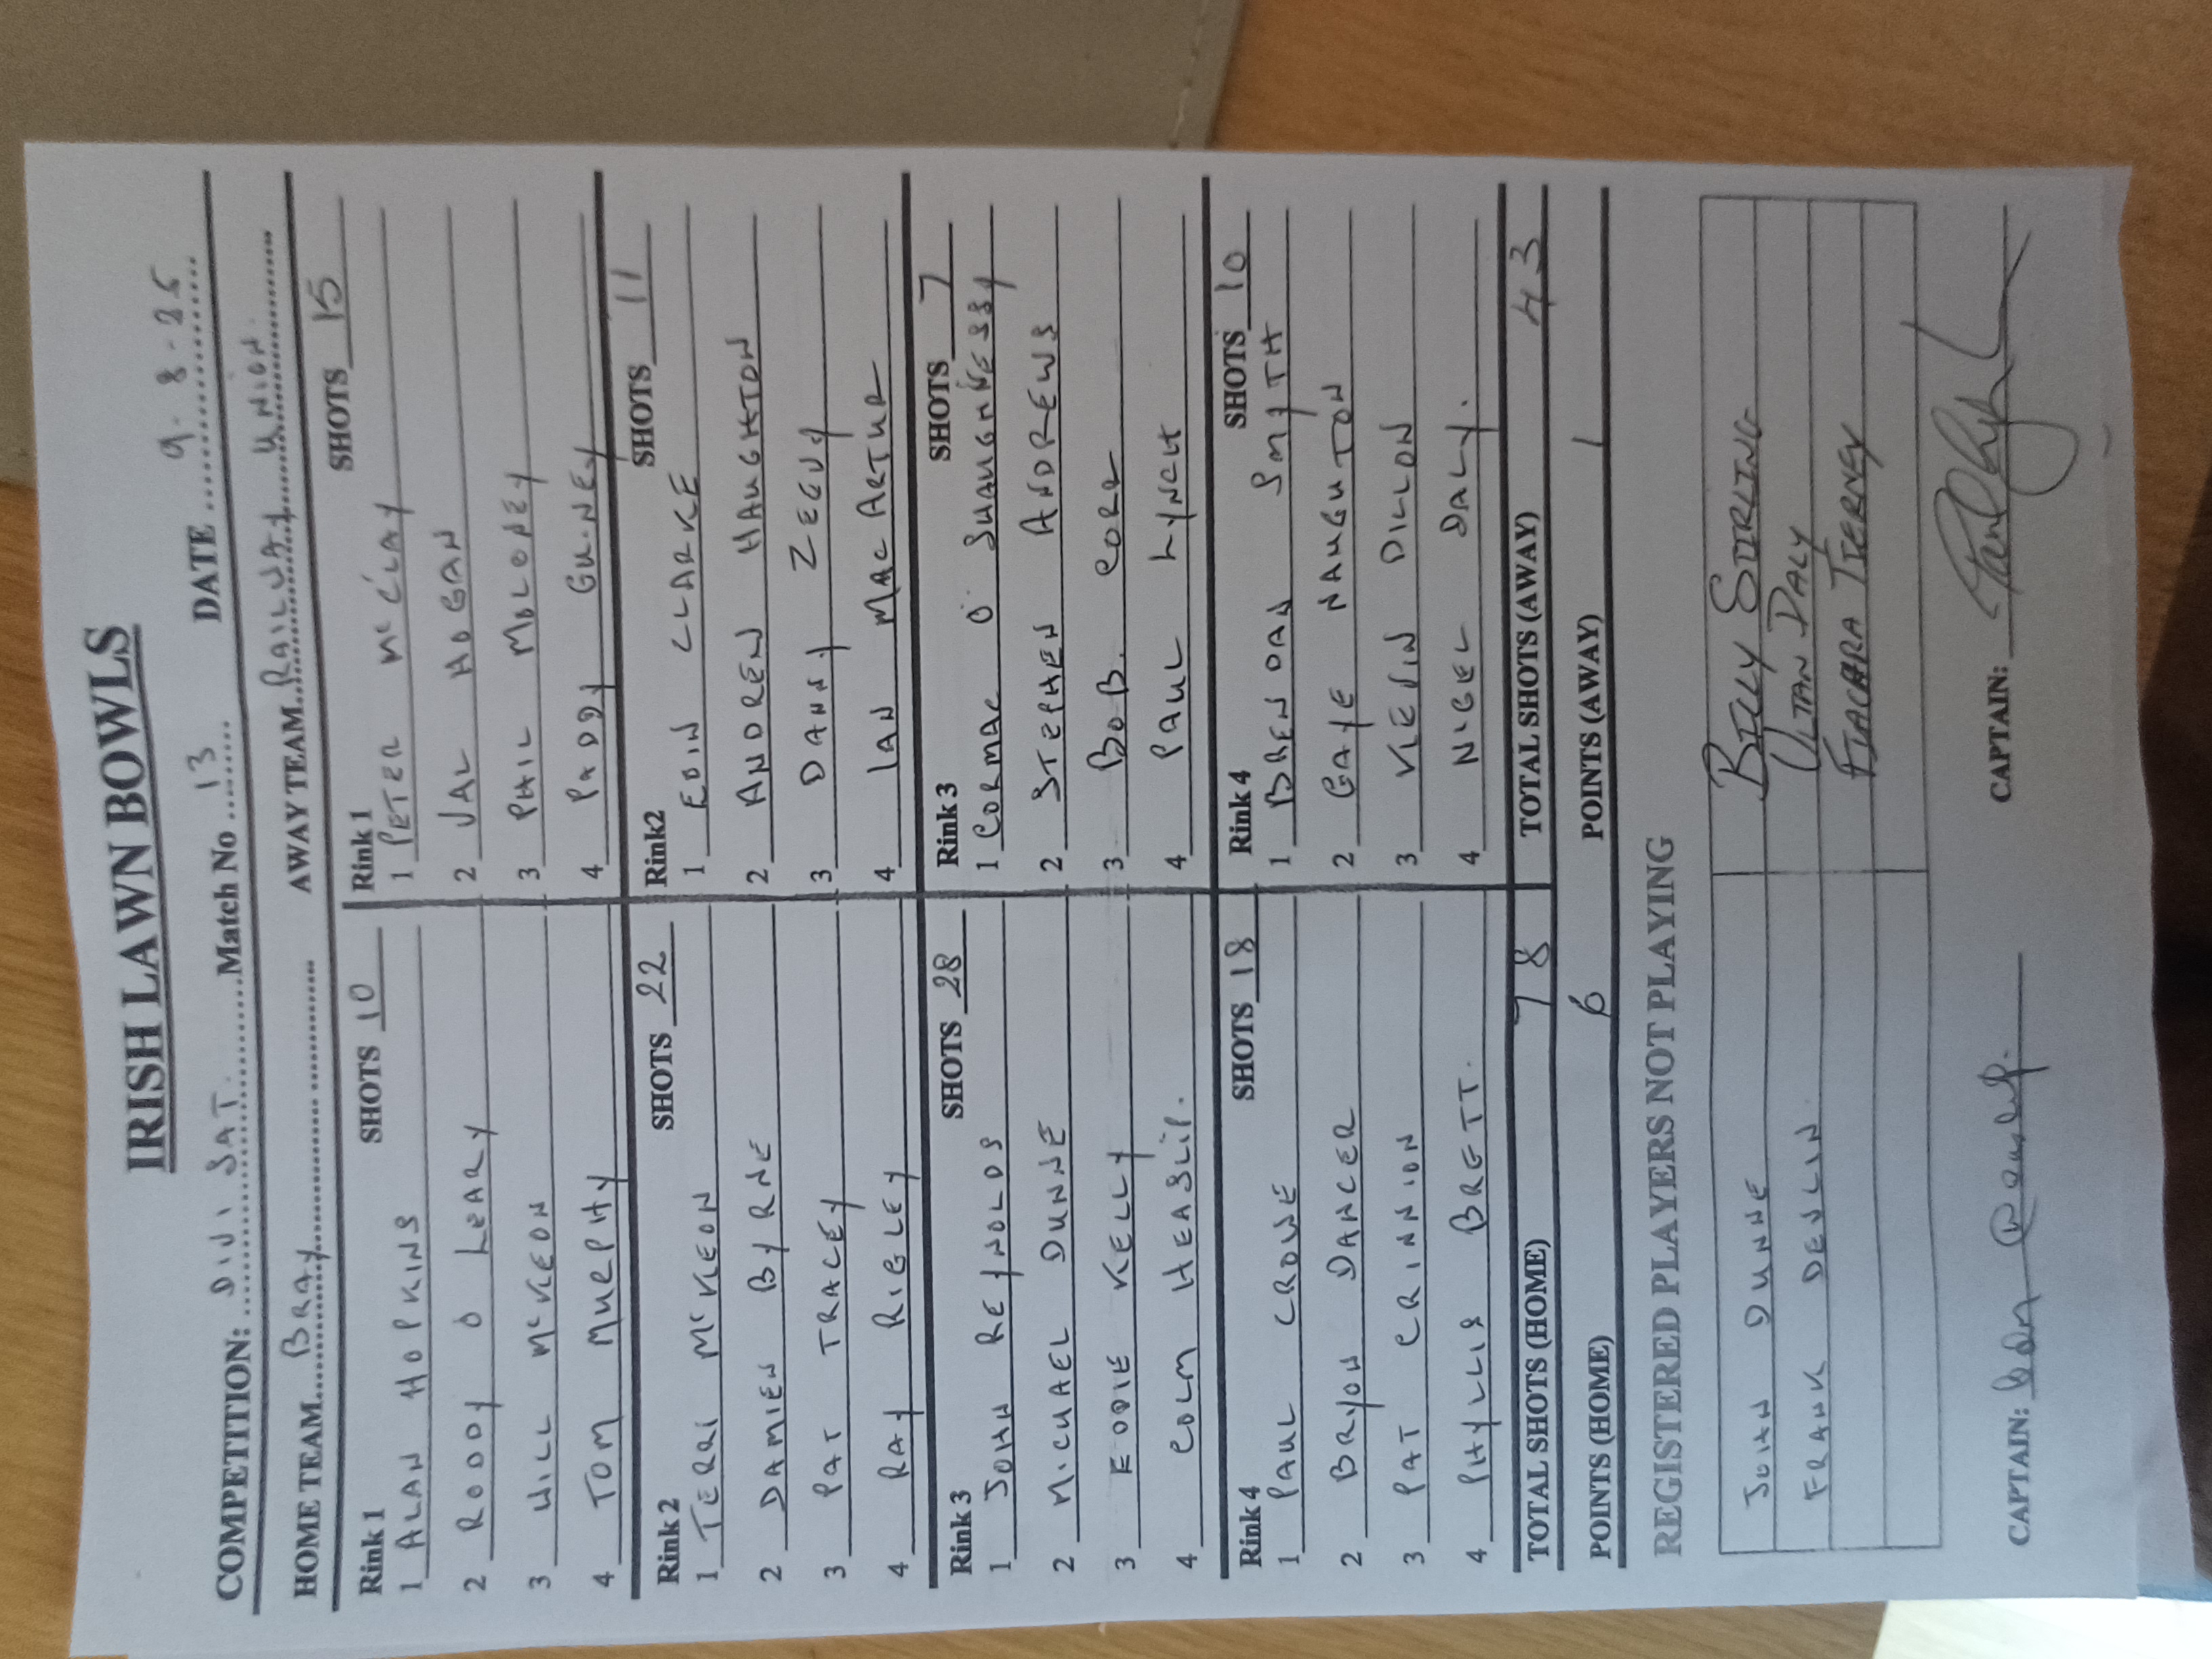 IRISH LAWN BOWLS
COMPETITION: DIV. 1 SAT. Match No 13 DATE 9-8-25
HOME TEAM BRAY AWAY TEAM RAILWAY UNION.
Rink 1 SHOTS 10 Rink 1 SHOTS 15
1 ALAN HOPKINS 1 PETER McCLAY
2 RODDY O LEARY 2 VAL HOGAN
3 WILL McKEON 3 PHIL MOLONEY
4 TOM MURPHY 4 PADDY GUINEY
Rink 2 SHOTS 22 Rink2 SHOTS 11
1 TERRI McKEON 1 EOIN CLARKE
2 DAMIEN BYRNE 2 ANDREW HAUGHTON
3 PAT TRACEY 3 DANNY
4 RAY RIGLEY 4 IAN MACARTHUR
Rink 3 SHOTS 28 Rink 3 SHOTS 7
1 JOHN REYNOLDS 1 CORMAC O SHAUGHNESSY
2 MICHAEL DUNNE 2 STEPHEN ANDREWS
3 EDDIE KELLY 3 BOB. CORR
4 COLM HEASLIP. 4 PAUL LYNCH
Rink 4 SHOTS 18 Rink 4 SHOTS 10
1 PAUL CROWE 1 BRENDAN SMYTH
2 BRYON DANCER 2 GAYE NAUGHTON
3 PAT CRINNION 3 KEVIN DILLON
4 PHYLLIS BRETT. 4 NIGEL DALY.
TOTAL SHOTS (HOME) 78 TOTAL SHOTS (AWAY) 43
POINTS (HOME) 6 POINTS (AWAY) 1
REGISTERED PLAYERS NOT PLAYING
JOHN DUNNE BILLY STIRLING
FRANK DEVLIN. ULTAN DALY
FIACHRA TIERNEY
CAPTAIN: CAPTAIN: